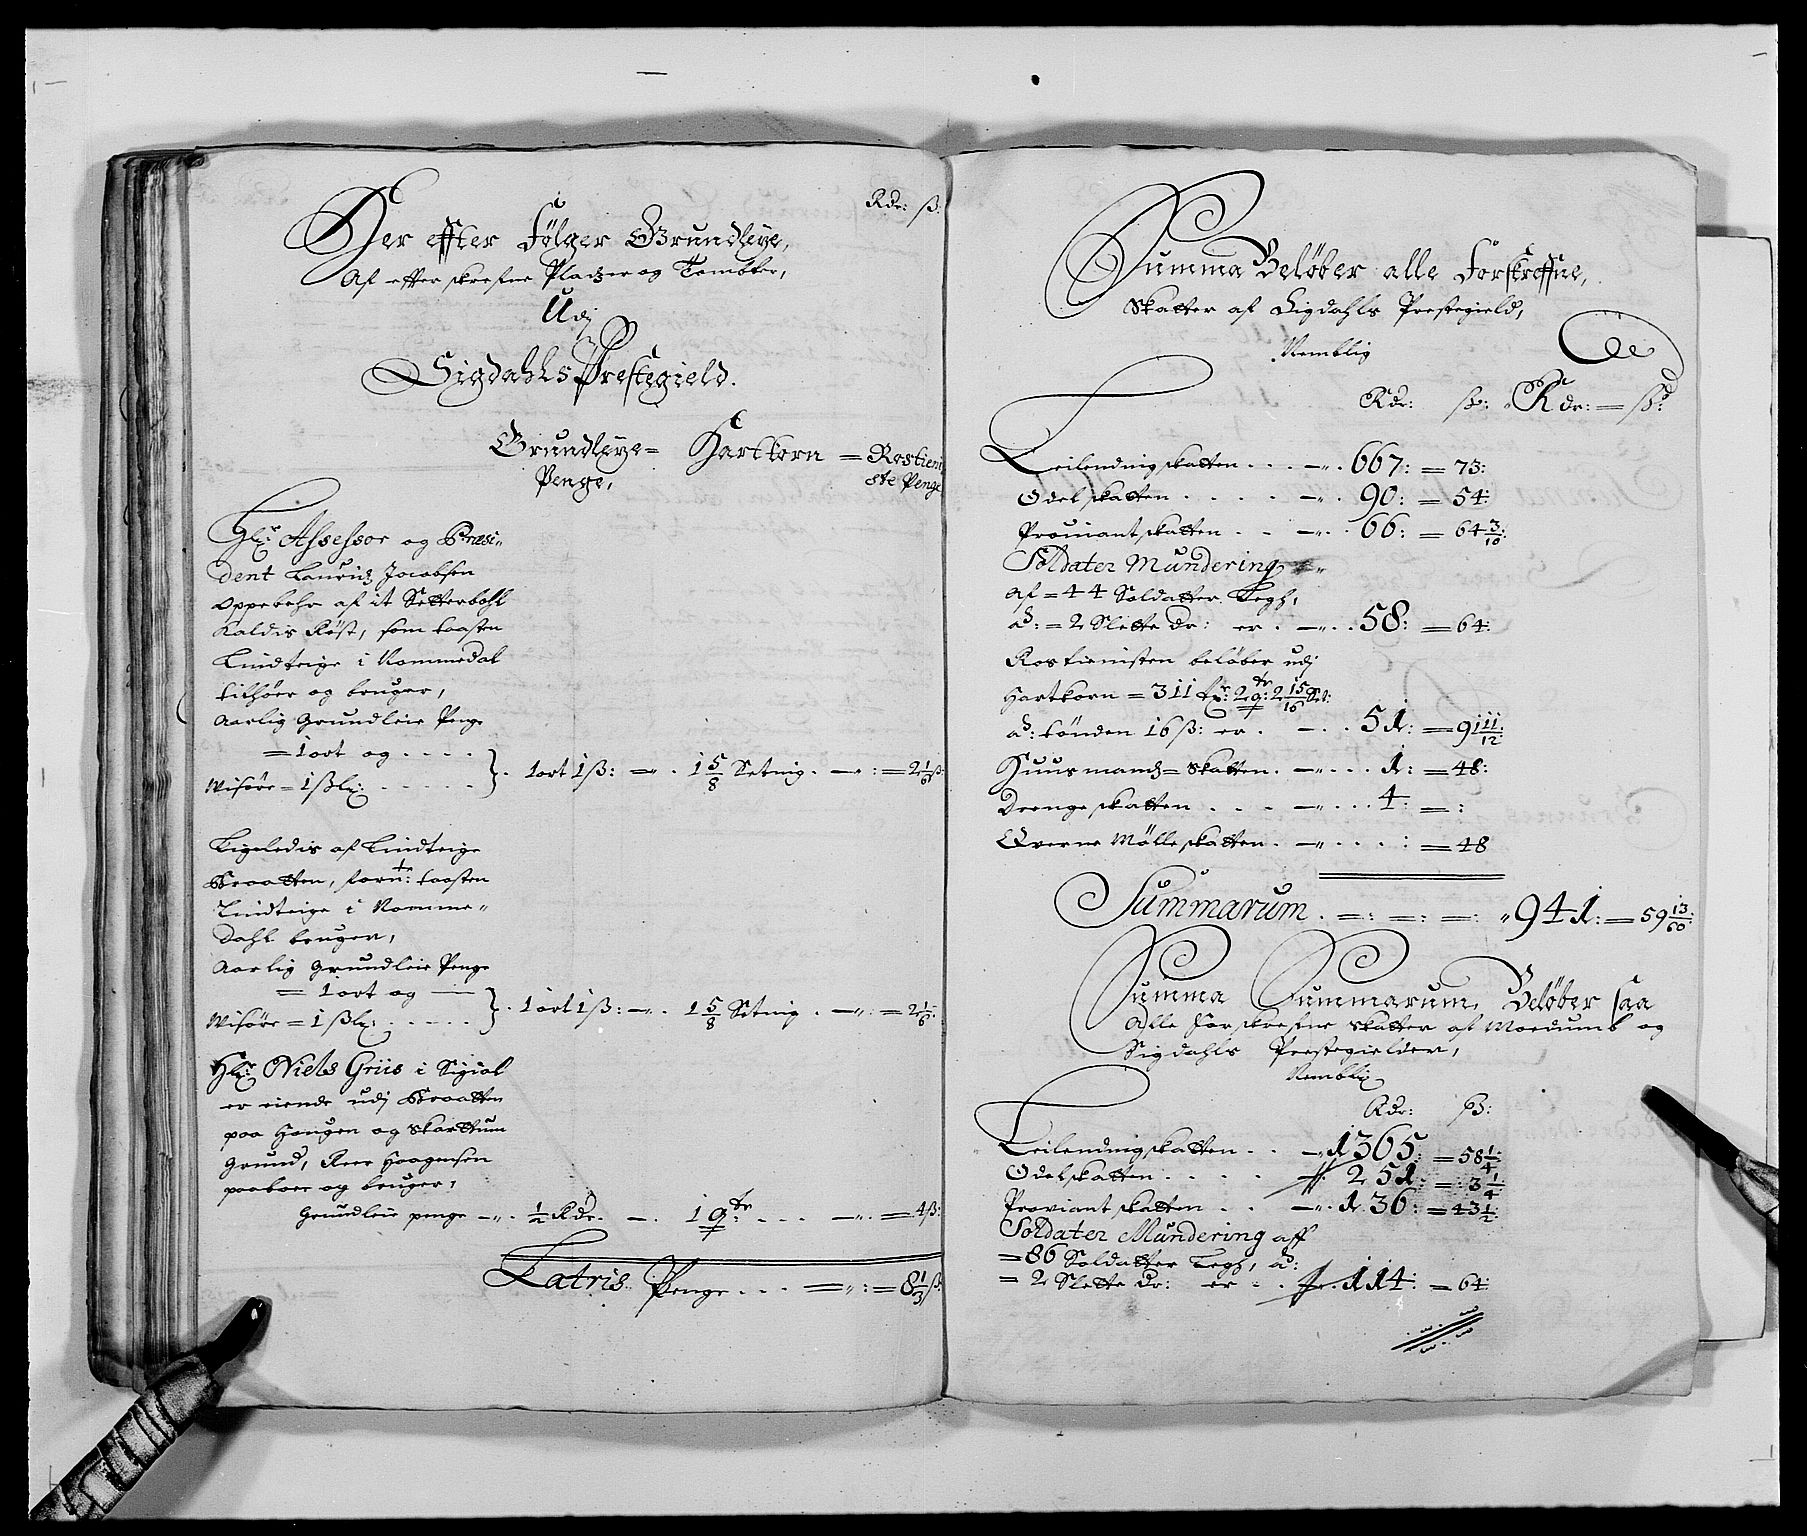 Rdr: ß:
Her effter Følger Grundleÿe,
Af effter skrefne Pladzer og Tombter,
Udj
Sigdahls Prestegield.
Grundleÿe= Hartkorn = Rostieni
Penge, ste Penge
Hr: Assessor og Præsi-
dent Lauridz Jacobsen
oppebehr af it Setterbohl
kaldis Røst, som Torsten
Lindteige i Nommedal
tilhører og bruger,
Aarlig Grundleie Penge
= 1 ort og . . . .
Wisøre = 1 ß . . . . . }. 1 ort 1 ß: =". 1 5/8 Setnig. —": = 2 1/6 ß:
Ligeledis af Lindteige
Braatten, forne: Torsten
Lindteige i Nomme-
dahl bruger,
Aarlig Grundleie Penge
= 1 ort og —
Wisøre = 1 ß . . . . . }. 1 ort 1 ß: —". 1 5/8 Setnig. —": = 2 1/6:
Hr: Niels Griis i Sigdal
er eiende udj Braatten
paa Hougen og Skartum
Grund, Roer Haagensen
paaboer og bruger,
Grundleie penge —". 1/2 Rdr. —. 1 qtr: . . . —": = 4 ß:
Latris Penge . . . =": = 8 1/3 ß:
Summa Beløber alle Forskreffne,
Skatter af Sigdahls Prestegield,
Nemblig
Rdr: ß: Rdr: = ß:
Leilendingskatten . . . —". 667: = 73:
Odelskatten . . . . —". 90: = 54:
Prouiantskatten . . —". 66: = 64 3/10:
Soldater Mundering
Af = 44 Soldatter Legh,
ad: = 2 Slette dr: er . —". . 58: = 64:
Rostienisten beløber udj
Hartkorn = 311 tr: 2 qtr: 2 15/16 Set:
ad: tønden 16 ß: er . —. . 51: = 91 11/12:
Huusmandz = Skatten . —". . . 1: = 48:
Drengeskatten . . . —". . . 4: = :
Qverne Mølleskatten . —". . . . : = 48
Summarum . =: =: =: " 941: = 59 13/60:
Summa Summarum, Beløber saa
Alle Forskrefne Skatter af Modumb og
Sigdahls Prestegielder,
Nemblig
Rdr: ß:
Leilendingskatten . . —". 1365: = 58 1/4:
Odelskatten . . . . 251: = 3 1/4
Proviantskatten . . —". 136: = 43 1/2
Soldater Mundering aff
= 86 Soldatter Legh, ad:
= 2 Slette dr: er . . 114: = 64: